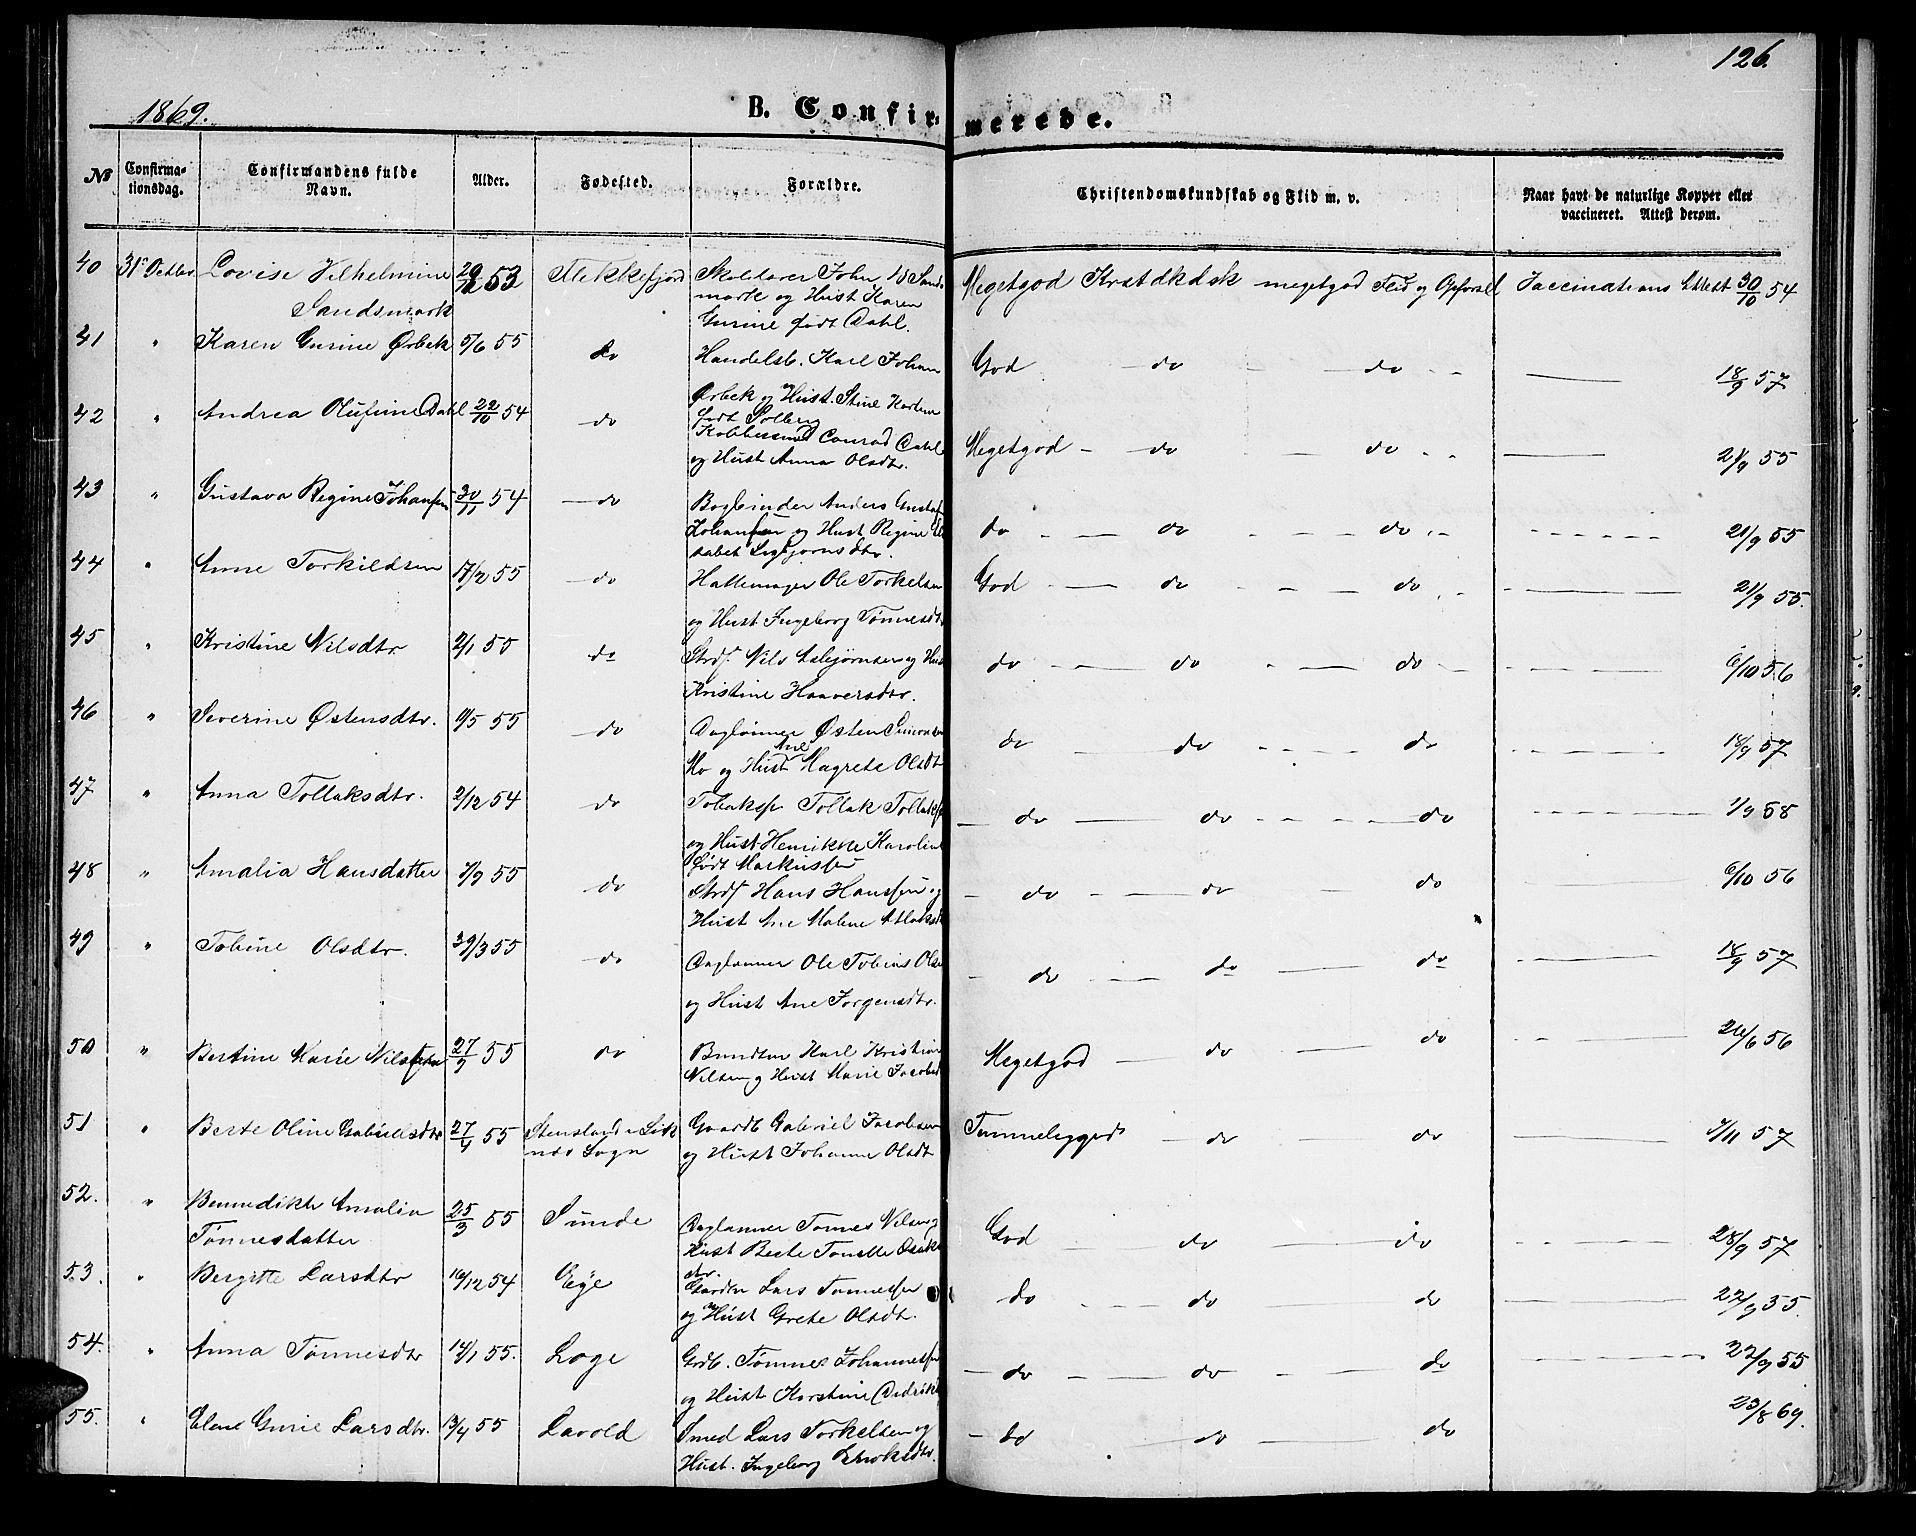 126.
1869.
B. Confirmerede.
No Confirmationsdag. Confirmandens fulde Navn. Alder. Fødested. Forældre. Christendomskundskab og Flid m. v. Naar havt de naturlige Kopper eller vaccineret. Attest derom.
40 31te Octbr Lovise Vilhelmine 53 Flekkefjord Skolelærer John Sands Megetgod Krstdkdsk megetgod Flid og Opførsel Vaccinations Attest 30/10 54
Sandsmark mark og Hust Karen
Gurine født Dahl.
41 " Karen Gurine Ørbek 5/6 55 do Handelsb. Karl Johan God do do 18/9 57
Ørbek og Hust. Stine
født Solberg
42 " Andrea Olufine Dahl 22/10 54 do Conrad Dahl Megetgod do do 21/9 55
og Hust Anna Olsdtr.
43 " Gustava Regine Johansen 30/11 54 do Bogbinder Anders Gustaf do do do 21/9 55
Johansen og Hust Regine
44 " Anne Torkildsen 17/2 55 do Hattemager Ole Torkelsen God do do 21/9 55.
og Hust Ingeborg Tønnesdt
45 " Kristine Nilsdtr 2/1 55 do Strdf. Nils Asbjørnsen og Hust do do do 6/10 56
Kristine Haaversdtr.
46 " Severine Østensdtr. 9/5 55 do Daglønner Østen Simonsen do do do 18/9 57
Mo og Hust Ane Magrete Olsdt
47 " Anna Tollaksdtr. 2/12 54 do Tollak Tollaksf do do do 1/9 58
og Hust Henrikke Karolin
født Markussen
48 " Amalia Hansdatter 7/9 55 do Strdf Hans Hanssen og do do do 6/10 56
Hust Ane Malene
49 " Tobine Olsdtr. 29/3 55 do Daglønner Ole Tobias Olsen do do do 18/9 57
og Hust Ane Jørgensdtr.
50 " Bertine Marie Nilssen 55 do Karl Kristian Megetgod do do 26/6 56
Nilsen og Hust Marie Jacobsd
51 " Berte Oline Gabrielsdtr 27/4 55 Stensland i Gaardb Gabriel Jacobsen Temmeliggod do do 7/11 57
Sogn og Hust Johanne Olsdt
52. " Bennedikte Amalia 25/3 55 Sunde Daglønner Tønnes Nilsen og God do do 28/9 57
Tønnesdatter Hust Berte Tonette
dtr.
53. " Bergitte Larsdtr 16/12 54 Ege Lars Tønnessen do do do 22/9 55.
og Hust Grete Olsdt.
54. " Anna Tønnesdtr 14/1 55. Loge Grdb. Tønnes Johannessen do do do 22/9 55
og Hust Karstine
55. " Elene Gurie Larsdtr. 13/4 55 Lavold Smed Lars Torkelsen og do do do 23/8 69.
Hust. Ingeborg Eriksdtr.